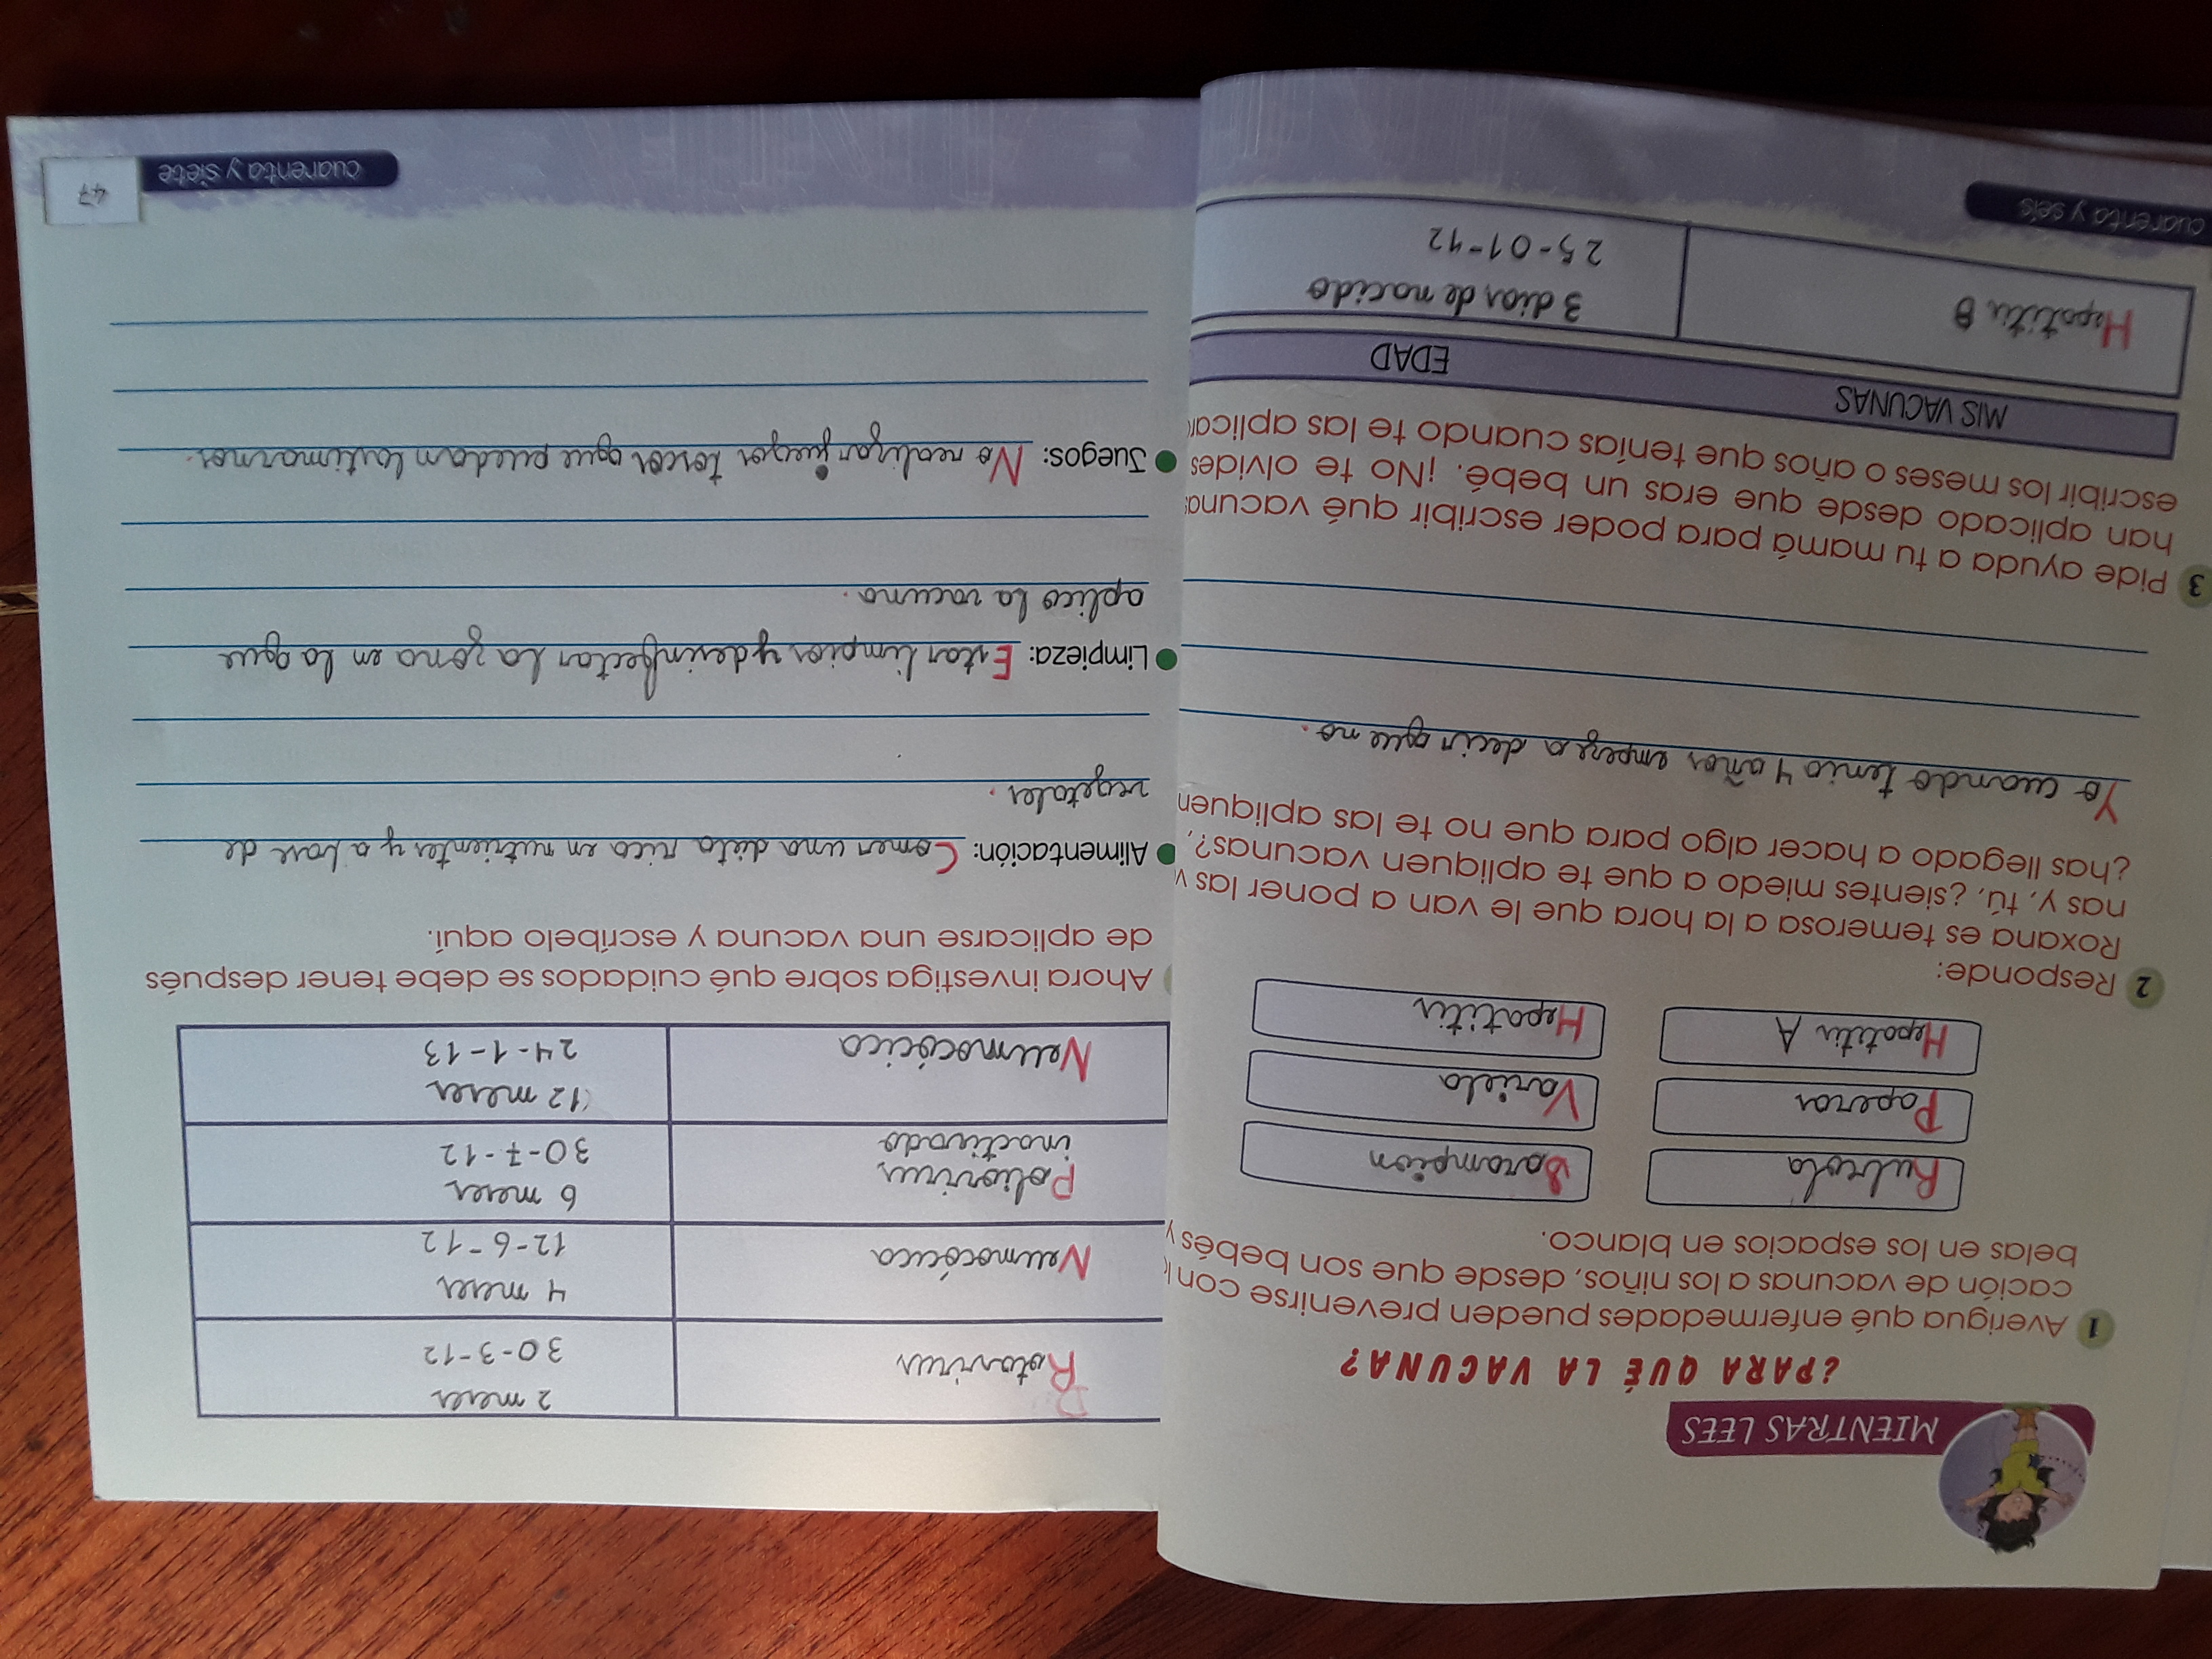 MIENTRAS LEES
¿PARA QUÉ LA VACUNA?
1 Averigua qué enfermedades pueden prevenirse con
cación de vacunas a los niños, desde que son bebés y
belas en los espacios en blanco.
Rubeola
Sarampion
Paperas
Variela
Hepatitis A
Hepatitis
2 Responde:
Roxana es temerosa a la hora que le van a poner las v
nas y, tú, ¿sientes miedo a que te apliquen vacunas?,
¿has llegado a hacer algo para que no te las apliquen
Yo cuando tenia 4 años empeze a decir que no.
3 Pide ayuda a tu mamá para poder escribir qué vacunas
han aplicado desde que eras un bebé. ¡No te olvides
escribir los meses o años que tenías cuando te las aplicar
MIS VACUNAS
EDAD
Hepatitis B
3 dias de nacido
25-01-12
cuarenta y seis
Rotavirus
2 meses
30-3-12
Neumocócica
4 meses
12-6-12
Poliovirus
inactivado
6 meses
30-7-12
Neumocócica
12 meses
24-1-13
Ahora investiga sobre qué cuidados se debe tener después
de aplicarse una vacuna y escríbelo aquí.
Alimentación: Comer una dieta rica en nutrientes y a base de
vegetales.
Limpieza: Estar limpios y desinfectar la zona en la que
aplico la vacuna.
Juegos: No realizar juegos toscos que puedan lastimarnos.
cuarenta y siete
47